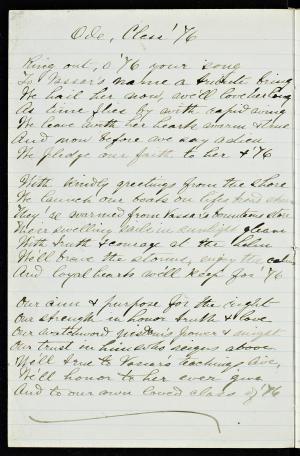 Ode, Class '76
Ring out, O '76 your song
To Vassar's name a tribute bring
We hail her now, we'll love her long
As time flies by with rapid wing
We leave with her hearts warm & true
And now before we say adieu
We pledge our faith to her & '76
With kindly greetings from the shore
We launch our boats on life's
They're warmed from Vassar's bounteous store
Their swelling sails in sunlight gleam
With truth & courage at the helm
We'll brave the storms, enjoy the calm
And loyal hearts we'll keep for '76
Our aim & purpose for the right
Our strength in honor truth & love
Our watchword wisdom's power & might
Our trust in him who reigns above
We'll true to Vassar's teachings live,
We'll honor to her ever give
And to our own loved class of '76